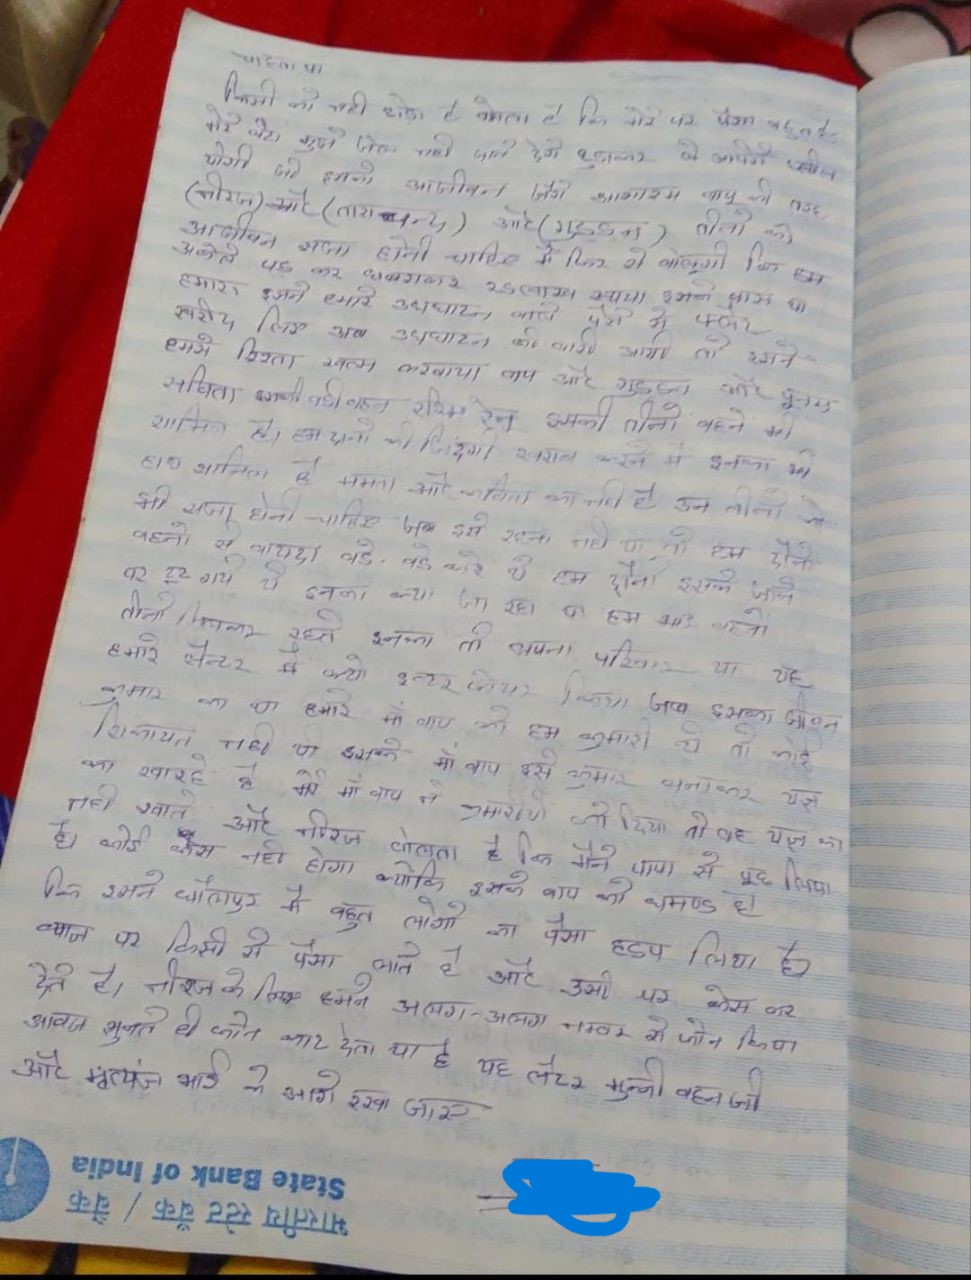 चाहता था
किसी को नही छोड़ा है बोलता है कि मेरे पर पैसा बहुत है
मेरे बेटा मुझे जेल नही जाने देगे छुडाकर ले आयेगे
योगी जी इनको आजीवन जैसे आशाराम बापू की तरह
(नीरज) और (ताराचन्द) और (गुड्डन) तीनो को
आजीवन सजा होनी चाहिए मै फिर से बोलूगी कि हम
अकेले पड कर घबराकर लाख रूपया इसके पास था
हमारा इसने हमारे उधघाटन वाले पैसे मे फ्लेट
खरीद लिए अब उधघाटन की बारी आयी तो इसने
हमसे रिश्ता खत्म करवाया बाप और गुड्डन और पूनम
सविता इसकी बडी बहन रश्मि रेनू इसकी तीनो बहने भी
शामिल है। हम दोनो की जिंदगी खराब करने मे इनका भी
हाथ शामिल है ममता और कविता का नही है उन तीनो को
भी सजा होनी चाहिए जब इसे रहना नही था तो हम दोनो
बहनो से वायदा बडे-बडे करे थे हम दोनो इसके जाने
पर टूट गये थे इनका क्या जा रहा था हम भाई बहनो
तीनो मिलकर रहते इनका तो अपना परिवार था यह
हमारे सेन्टर मे क्यो इन्टरफियर किया जब इसका जीवन
कुमार का था हमारे माँ बाप को हम कुमारी थे तो कोई
शिकायत नही थी इसके माँ बाप इसे कुमार बनाकर यज्ञ
का खा रहे है मेरे माँ बाप ने हमारा को दिया तो वह यज्ञ का
नही खाते और नीरज बोलता है कि मैने पापा से पूछ लिया
है। कोई केस नही होगा क्योकि इसके बाप को घमण्ड है
कि इसने धौलपुर मे बहुत लोगो का पैसा हडप लिया है।
ब्याज पर किसी से पैसा लाते है और उसी पर केस कर
देते है। नीरज के लिए हमने अलग-अलग नम्बर से फोन किया
आवाज सुनते ही फोन काट देता था है यह लैटर मुन्नी बहन जी
और मृत्यंज भाई के आगे रखा जाए
भारतीय स्टेट बैंक / बैंक
State Bank of India